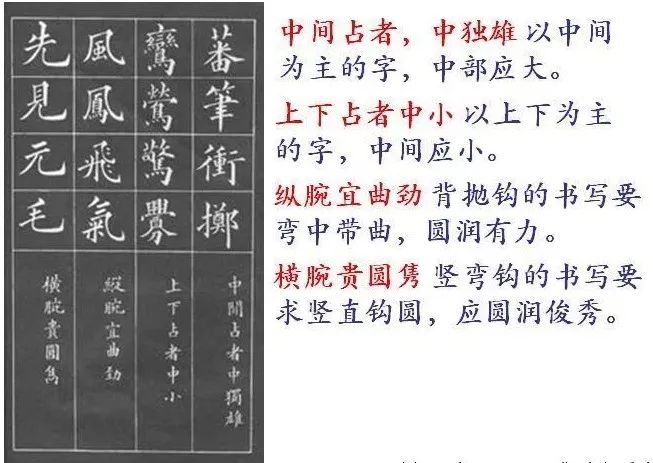 蕃筆衝擲
中間占者中獨雄
鸞鶯驚釁
上下占者中小
風鳳飛氣
縱腕宜曲勁
先見元毛
橫腕貴圓雋
中间占者，中独雄 以中间
为主的字，中部应大。
上下占者中小 以上下为主
的字，中间应小。
纵腕宜曲劲 背抛钩的书写要
弯中带曲，圆润有力。
横腕贵圆隽 竖弯钩的书写要
求竖直钩圆，应圆润俊秀。